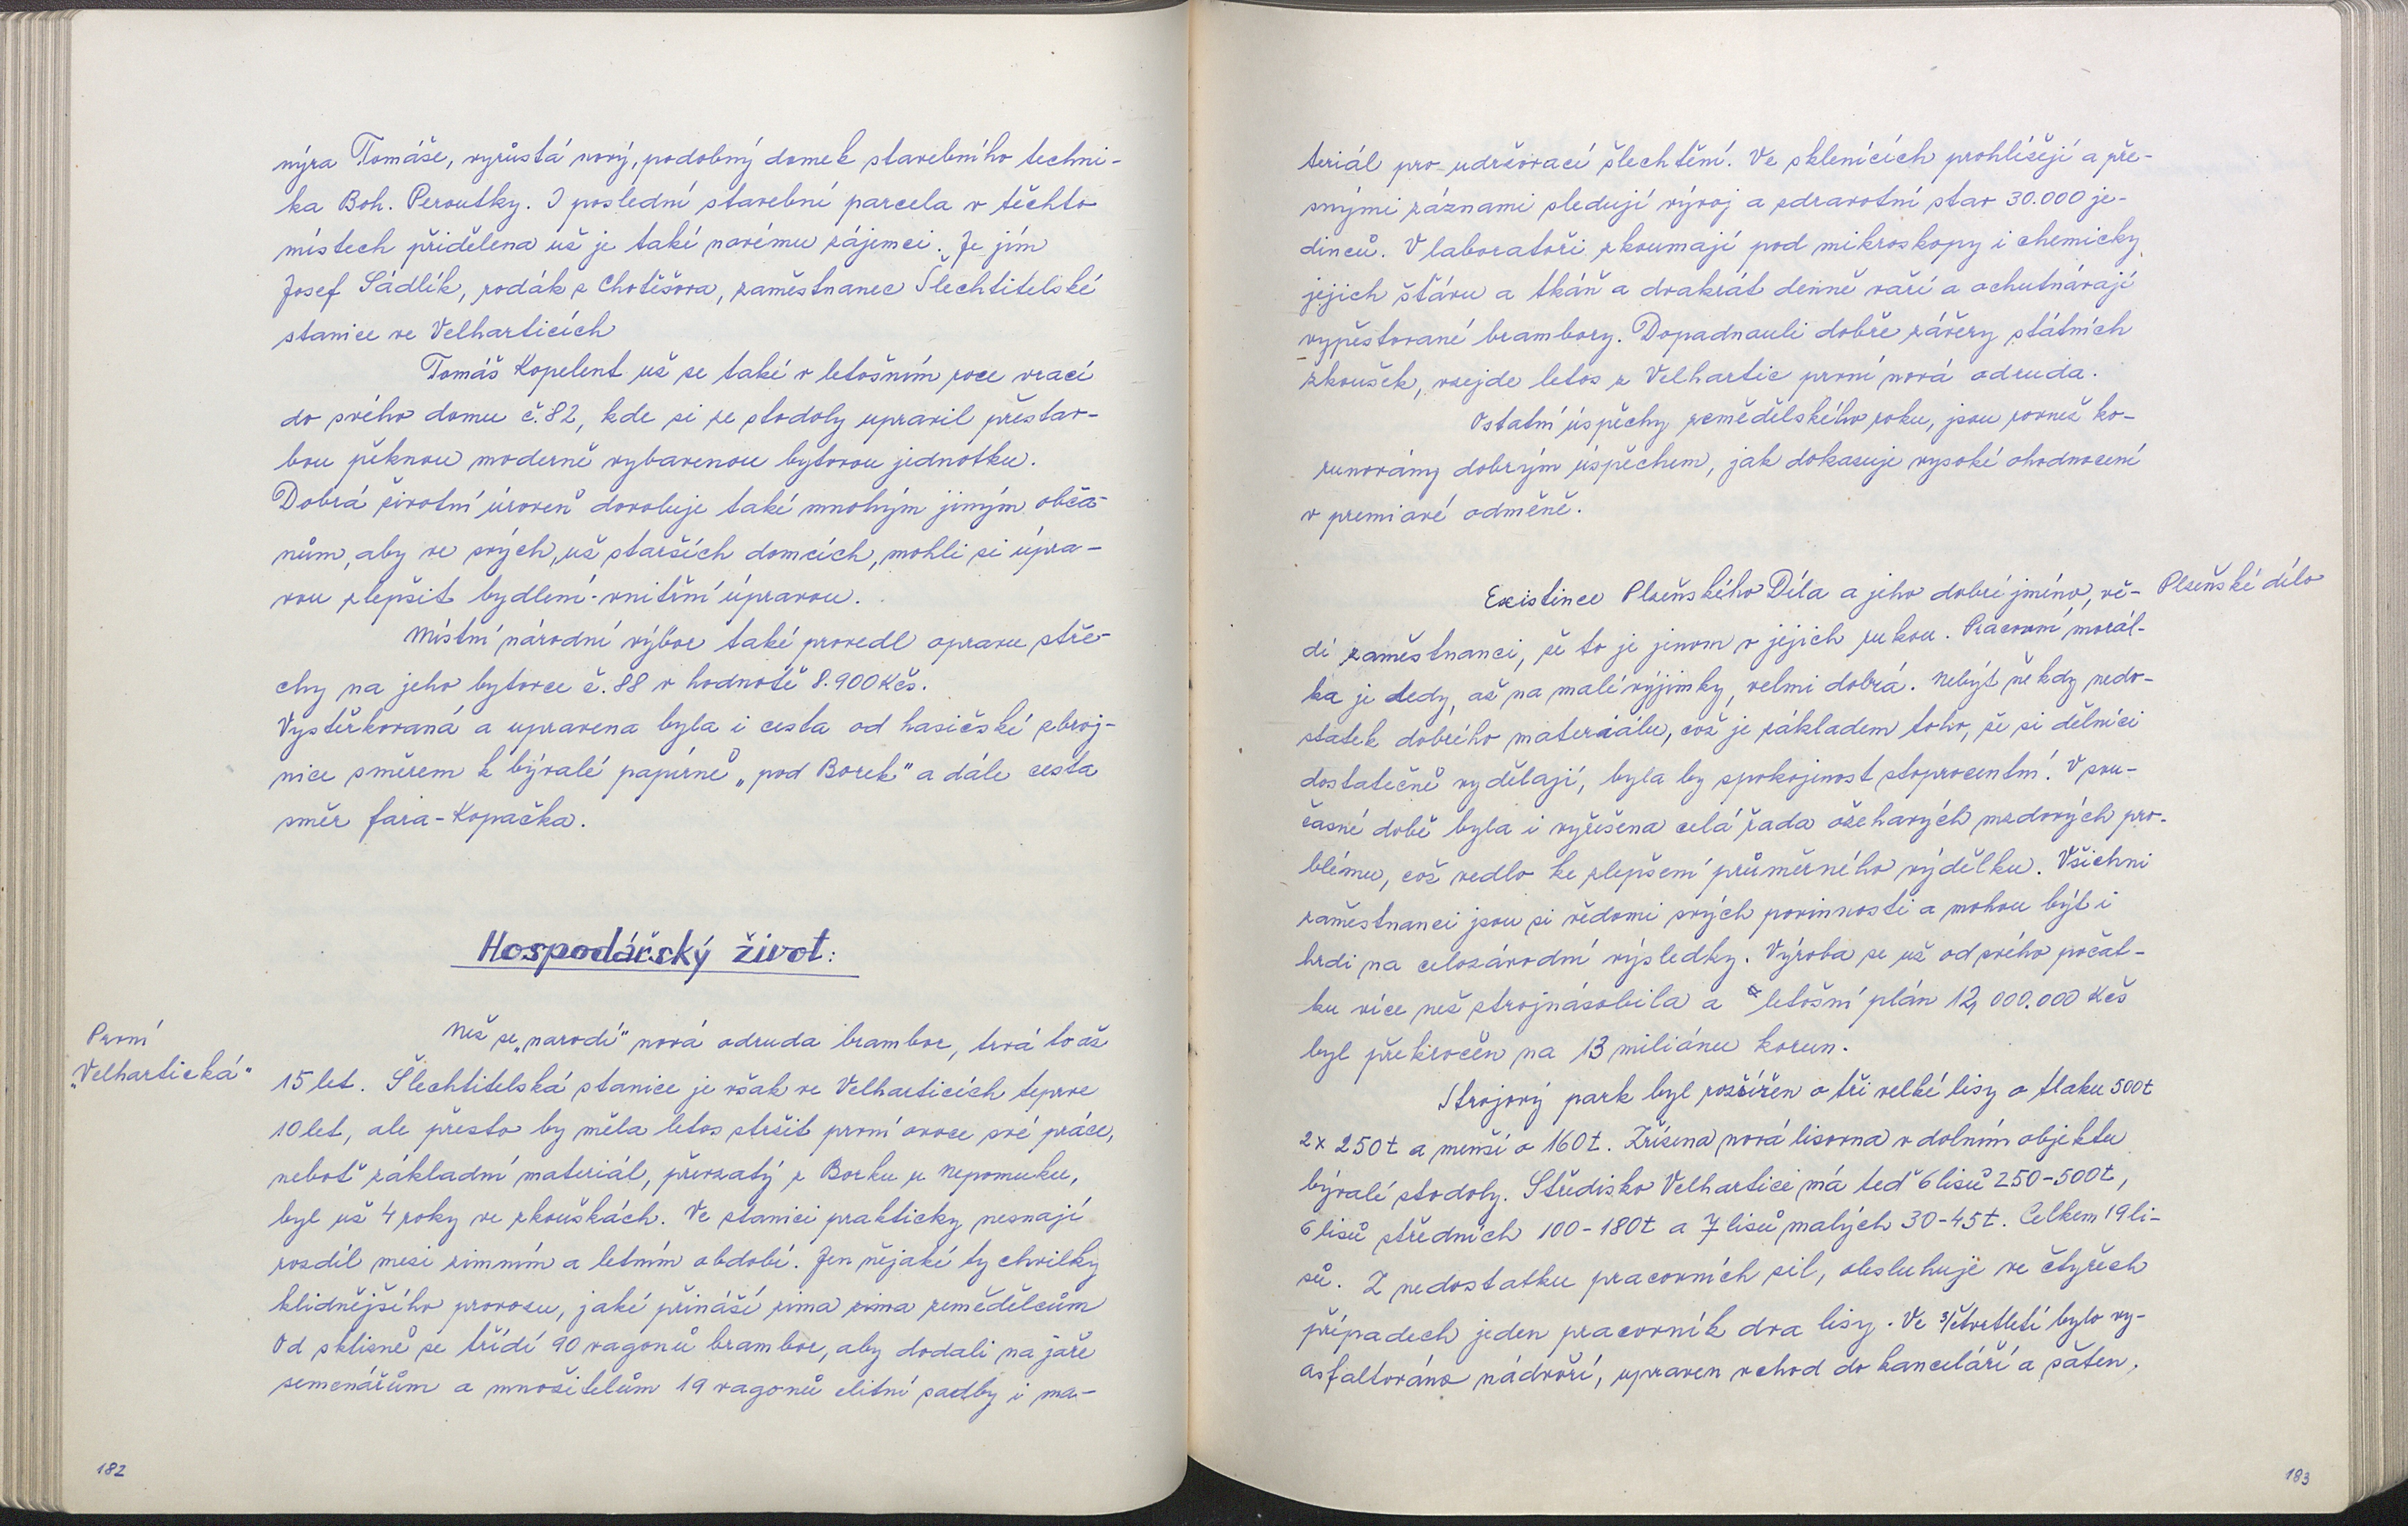 nýra Tomáše, vyrůstá nový, podobný domek stavebního techni-
ka Boh. Peroutky. I poslední stavební parcela v těchto
místech přidělena už je také novému zájemci. Je jím
Josef Sádlík, rodák z Chotěšova, zaměstnanec Šlechtitelské
stanice ve Velharticích
Tomáš Kopelent už se také v letošním roce vrací
do svého domu č. 82, kde si ze stodoly upravil přestav-
bou pěknou moderně vybavenou bytovou jednotku.
Dobrá životní úroveň dovoluje také mnohým jiným obča-
nům, aby ve svých, už starších domcích, mohli si úpra-
vou zlepšit bydlení - vnitřní úpravou.
Místní národní výbor také provedl opravu stře-
chy na jeho bytovce č. 88 v hodnotě 8.900 Kčs.
Vyštěrkovaná a upravena byla i cesta od hasičské zbroj-
nice směrem k bývalé papírně „pod Borek" a dále cesta
směr fara - Kopačka.
Hospodářský život:
První
„Velhartická"
Než se „narodí" nová odruda brambor, trvá to až
15 let. Šlechtitelská stanice je však ve Velharticích teprve
10 let, ale přesto by měla letos stržit první ovoce své práce,
neboť základní materiál, převzatý z Borku u Nepomuku,
byl už 4 roky ve zkouškách. Ve stanici prakticky neznají
rozdíl mezi zimním a letním období. Jen nějaké ty chvilky
klidnějšího provozu, jaké přináší zima zima zemědělcům
Od sklizně se třídí 90 vagonů brambor, aby dodali na jaře
semenářům a množitelům 19 vagonů elitní sadby i ma-
182
teriál pro udržovací šlechtění. Ve sklenících prohlížejí a pře-
snými záznami sledují vývoj a zdravotní stav 30.000 je-
dinců. V laboratoři zkoumají pod mikroskopy i chemicky
jejich šťávu a tkáň a dvakrát denně vaří a ochutnávají
vypěstované brambory. Dopadnouli dobře závěry státních
zkoušek, vzejde letos z Velhartic první nová odruda.
Ostatní úspěchy zemědělského roku, jsou rovnež ko-
runovány dobrým úspěchem, jak dokazuje vysoké ohodnocení
v premiové odměně.
Existince Plzeňského Díla a jeho dobré jméno, vě-
Plzeňské dílo
dí zaměstnanci, že to je jenom v jejich rukou. Pracovní morál-
ka je tedy, až na malé výjimky, velmi dobrá. Nebýt někdy nedo-
statek dobrého materiálu, což je základem toho, že si dělníci
dostatečně vydělají, byla by spokojenost stoprocentní. V sou-
časné době byla i vyřešena celá řada ožehavých mzdových pro-
blému, což vedlo ke zlepšení průměrného výdělku. Všichni
zaměstnanci jsou si vědomi svých povinností a mohou být i
hrdi na celozávodní výsledky. Výroba se už od svého počát-
ku více než strojnásobila a letošní plán 12,000.000 Kčs
byl překročen na 13 miliónu korun.
Strojový park byl rozšířen o tři velké lisy o tlaku 500t
2x 250t a menší o 160t. Zřísena nová lisovna v dolním objektu
bývalé stodoly. Středisko Velhartice má teď 6 lisů 250-500t,
6 lisů středních 100-180t a 7 lisů malých 30-45t. Celkem 19 li-
sů. Z nedostatku pracovních sil, obsluhuje ve čtyřech
případech jeden pracovník dva lisy. Ve 3/čtvrtletí bylo vy-
asfaltováno nádvoří, upraven vchod do kanceláří a šaten,
183